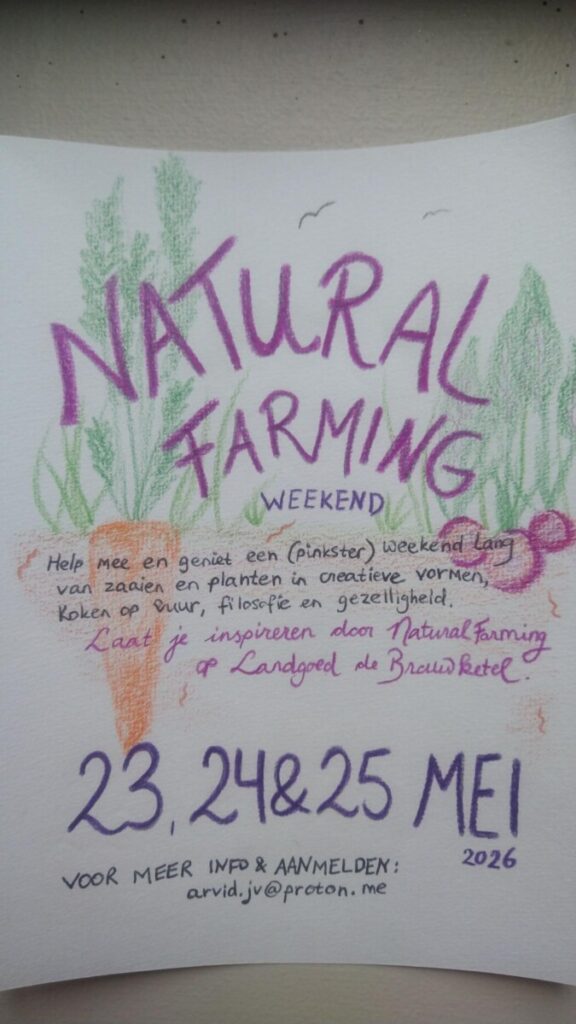 NATURAL
FARMING
WEEKEND
Help mee en geniet een (pinkster) weekend lang
van zaaien en planten in creatieve vormen,
koken op vuur, filosofie en gezelligheid.
Laat je inspireren door Natural Farming
op Landgoed de Brouwketel.
23, 24 & 25 MEI
2026
VOOR MEER INFO & AANMELDEN:
arvid.jv@proton.me